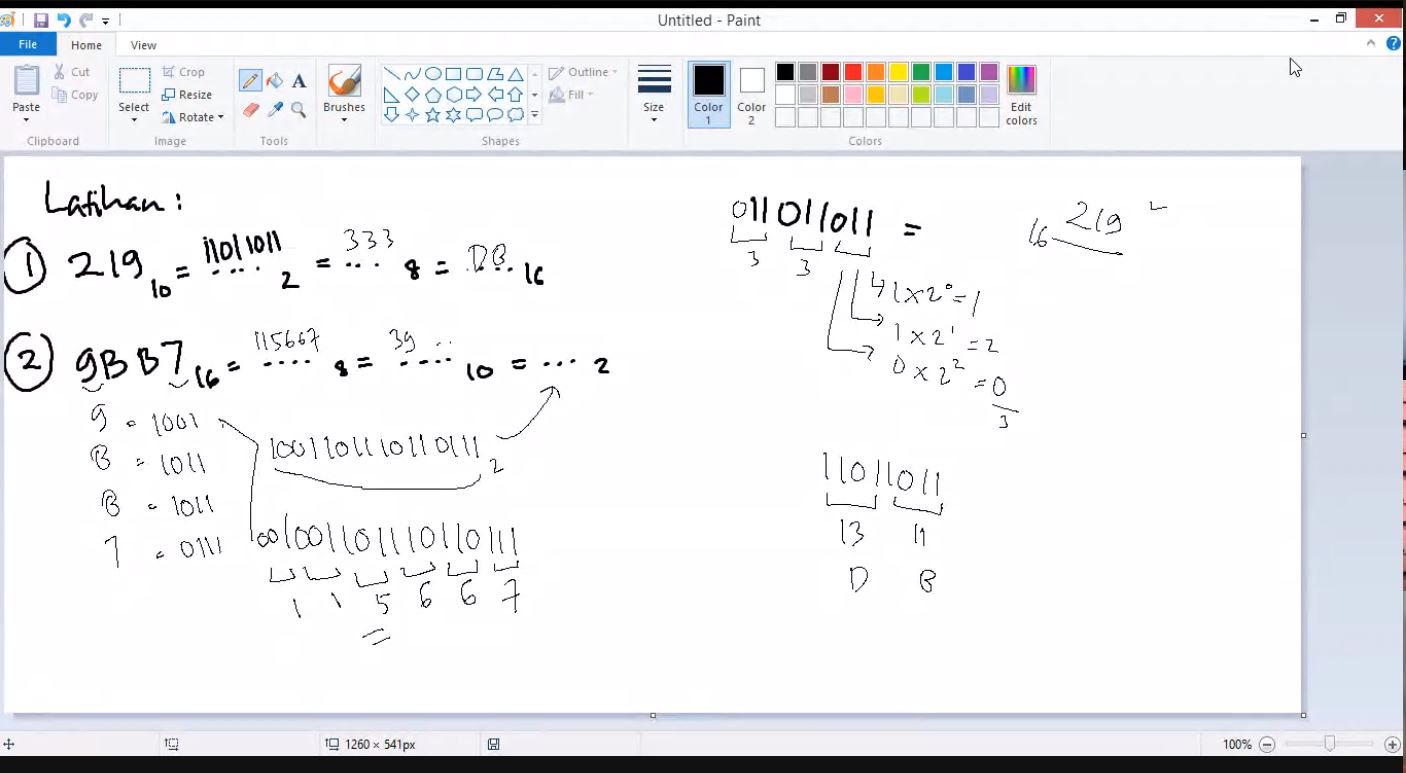 Untitled - Paint
File Home View
Paste Cut Copy Clipboard
Select Crop Resize Rotate Image
A Tools
Brushes
Outline Fill Shapes
Size
Color 1 Color 2 Edit colors Colors
Latihan :
1 219 10 = 11011011 .... 2 = 333 ... 8 = DB ... 16
2 9BB7 16 = 115667 .... 8 = 39 .. .... 10 = ... 2
9 = 1001
B = 1011
B = 1011
7 = 0111
1001101110110111 2
001001101110110111
1 1 5 6 6 7
=
011011011 =
3 3
1 x 2⁰ = 1
1 x 2¹ = 2
0 x 2² = 0
3
16 219
11011011
13 11
D B
1260 × 541px
100%